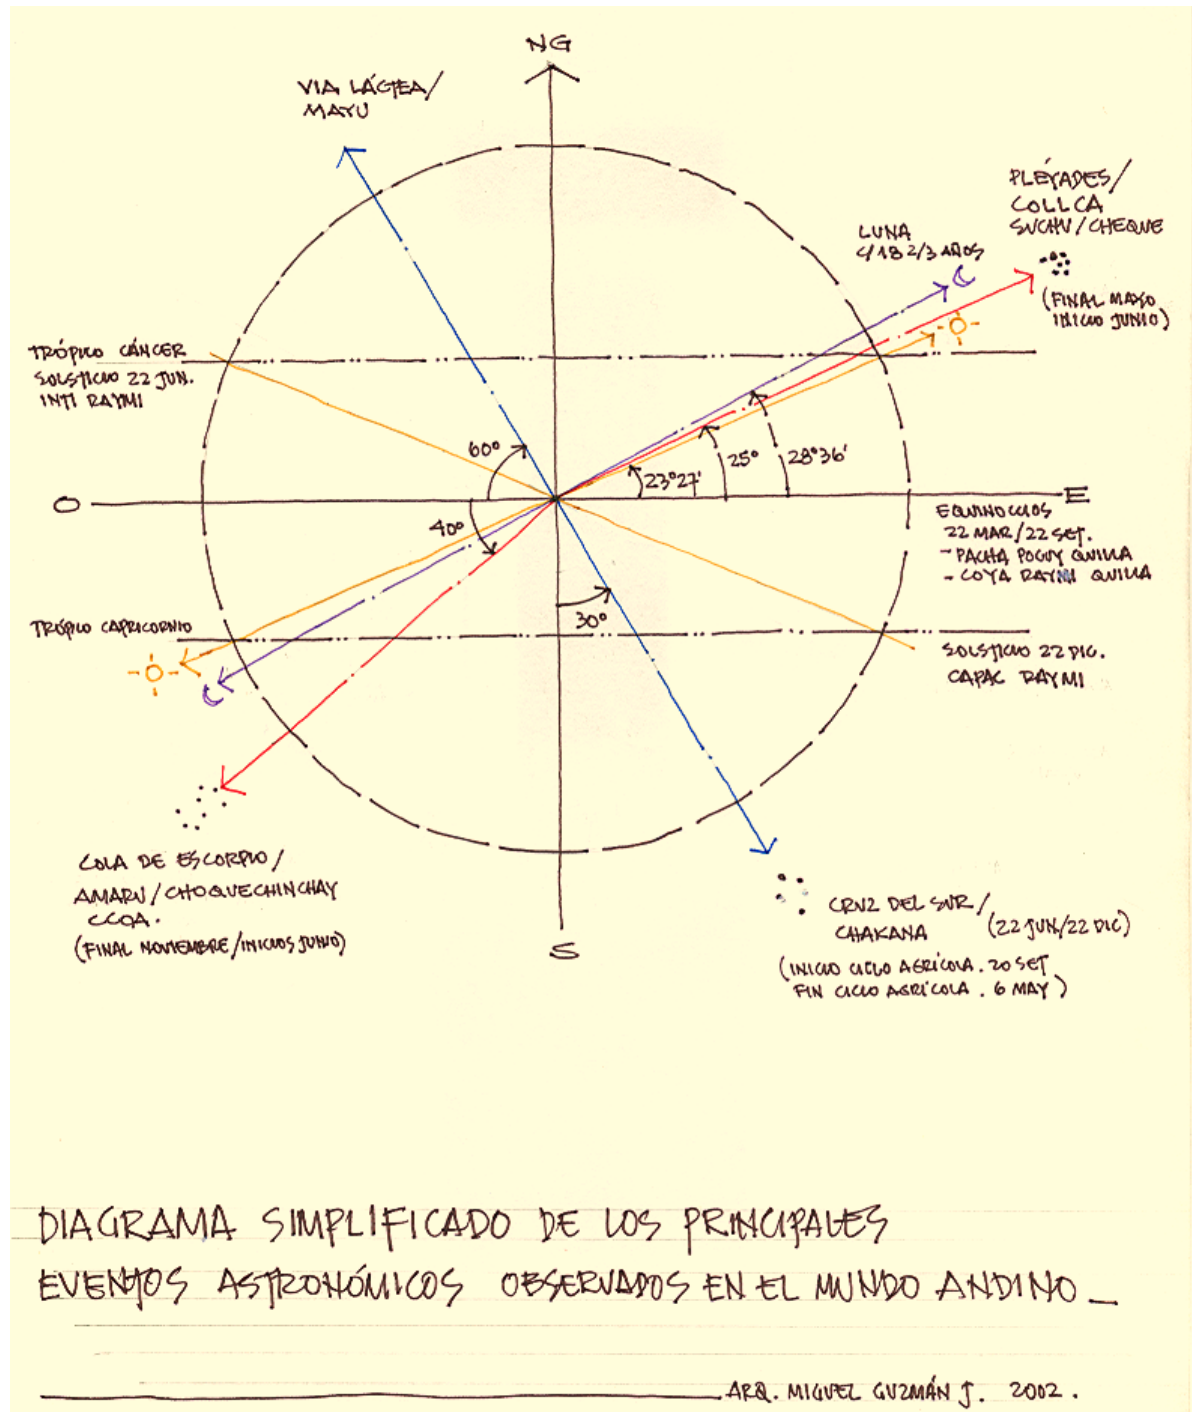 NG
VIA LÁCTEA/
MAYU
PLÉYADES/
COLLCA
SUCHU/CHEQUE
(FINAL MAYO
INICIO JUNIO)
LUNA
C/18 2/3 AÑOS
TRÓPICO CÁNCER
SOLSTICIO 22 JUN.
INTI RAYMI
60°
23°27'
25°
28°36'
O
E
40°
30°
EQUINOCCIOS
22 MAR/22 SET.
- PACHA POCUY QUILLA
- COYA RAYMI QUILLA
TRÓPICO CAPRICORNIO
SOLSTICIO 22 DIC.
CAPAC RAYMI
COLA DE ESCORPIO/
AMARU/CHOQUECHINCHAY
CCOA.
(FINAL NOVIEMBRE/INICIOS JUNIO)
S
CRUZ DEL SUR/
CHAKANA
(22 JUN/22 DIC)
(INICIO CICLO AGRÍCOLA. 20 SET
FIN CICLO AGRÍCOLA. 6 MAY)
DIAGRAMA SIMPLIFICADO DE LOS PRINCIPALES
EVENTOS ASTRONÓMICOS OBSERVADOS EN EL MUNDO ANDINO_
ARQ. MIGUEL GUZMÁN J. 2002.